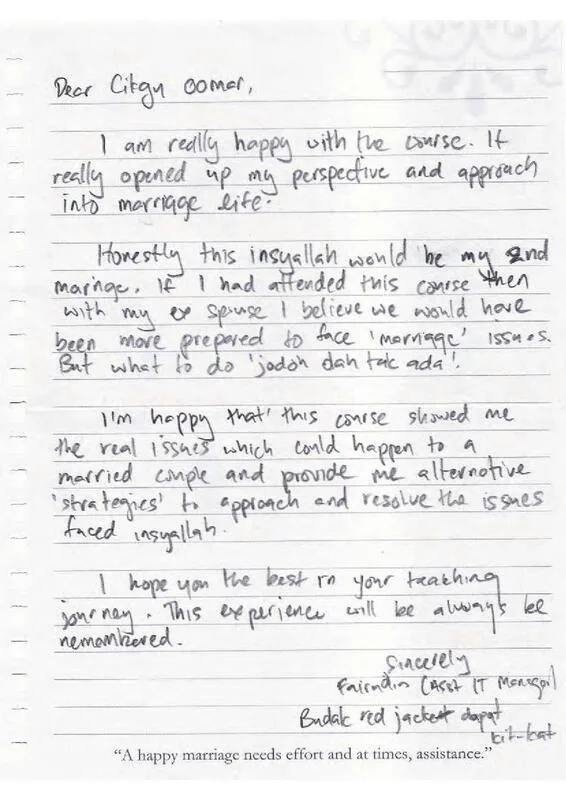 Dear Cikgu Oomar,
I am really happy with the course. It
really opened up my perspective and approach
into marriage life.
Honestly this insyallah would be my 2nd
marriage. If I had attended this course then
with my ex spouse I believe we would have
been more prepared to face 'marriage' issues.
But what to do 'jodoh dah tak ada'.
I'm happy that this course showed me
the real issues which could happen to a
married couple and provide me alternative
'strategies' to approach and resolve the issues
faced insyallah.
I hope you the best in your teaching
journey. This experience will be always be
remembered.
Sincerely
(Asst IT Manager)
Budak red jacket dapat
kit-kat
"A happy marriage needs effort and at times, assistance."